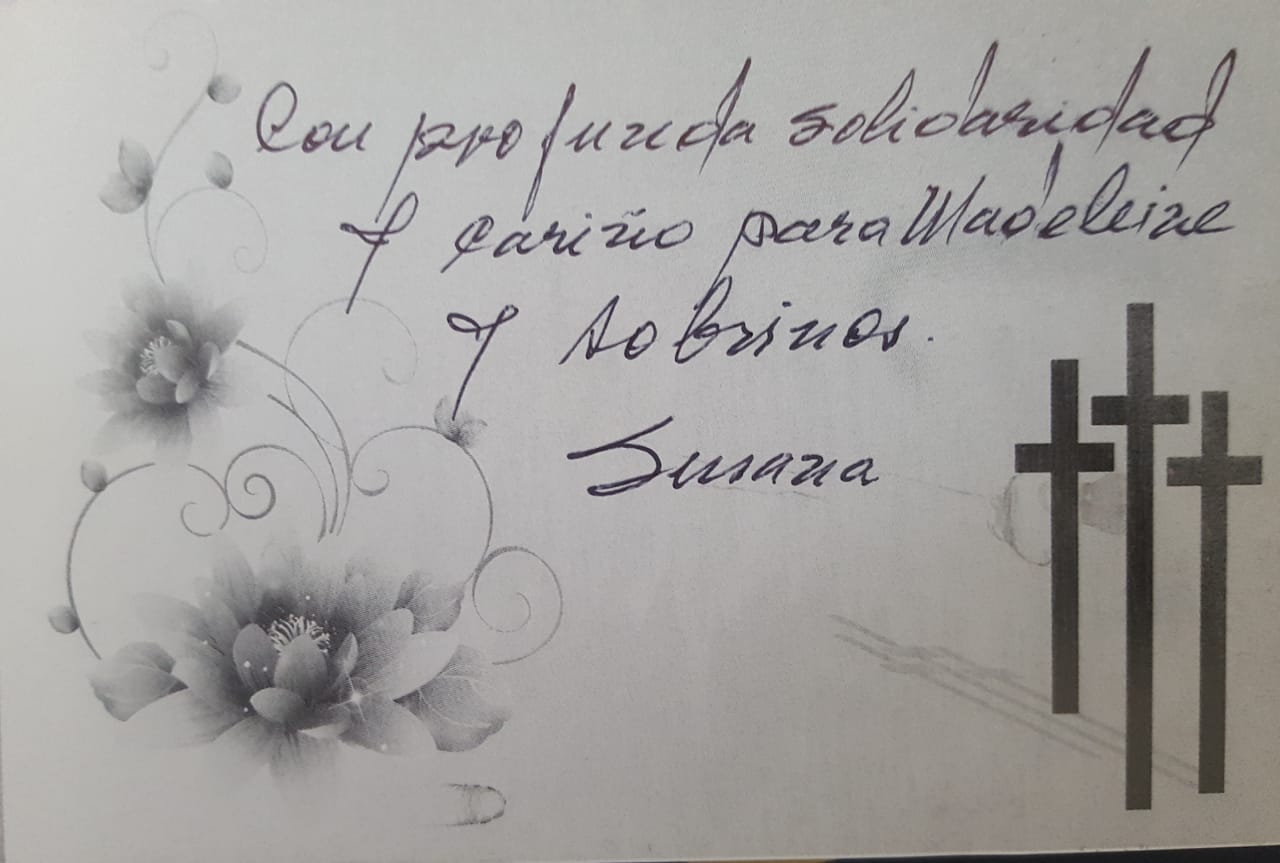 Con profunda solidaridad
y cariño para Madeleine
y sobrinos.
Susana